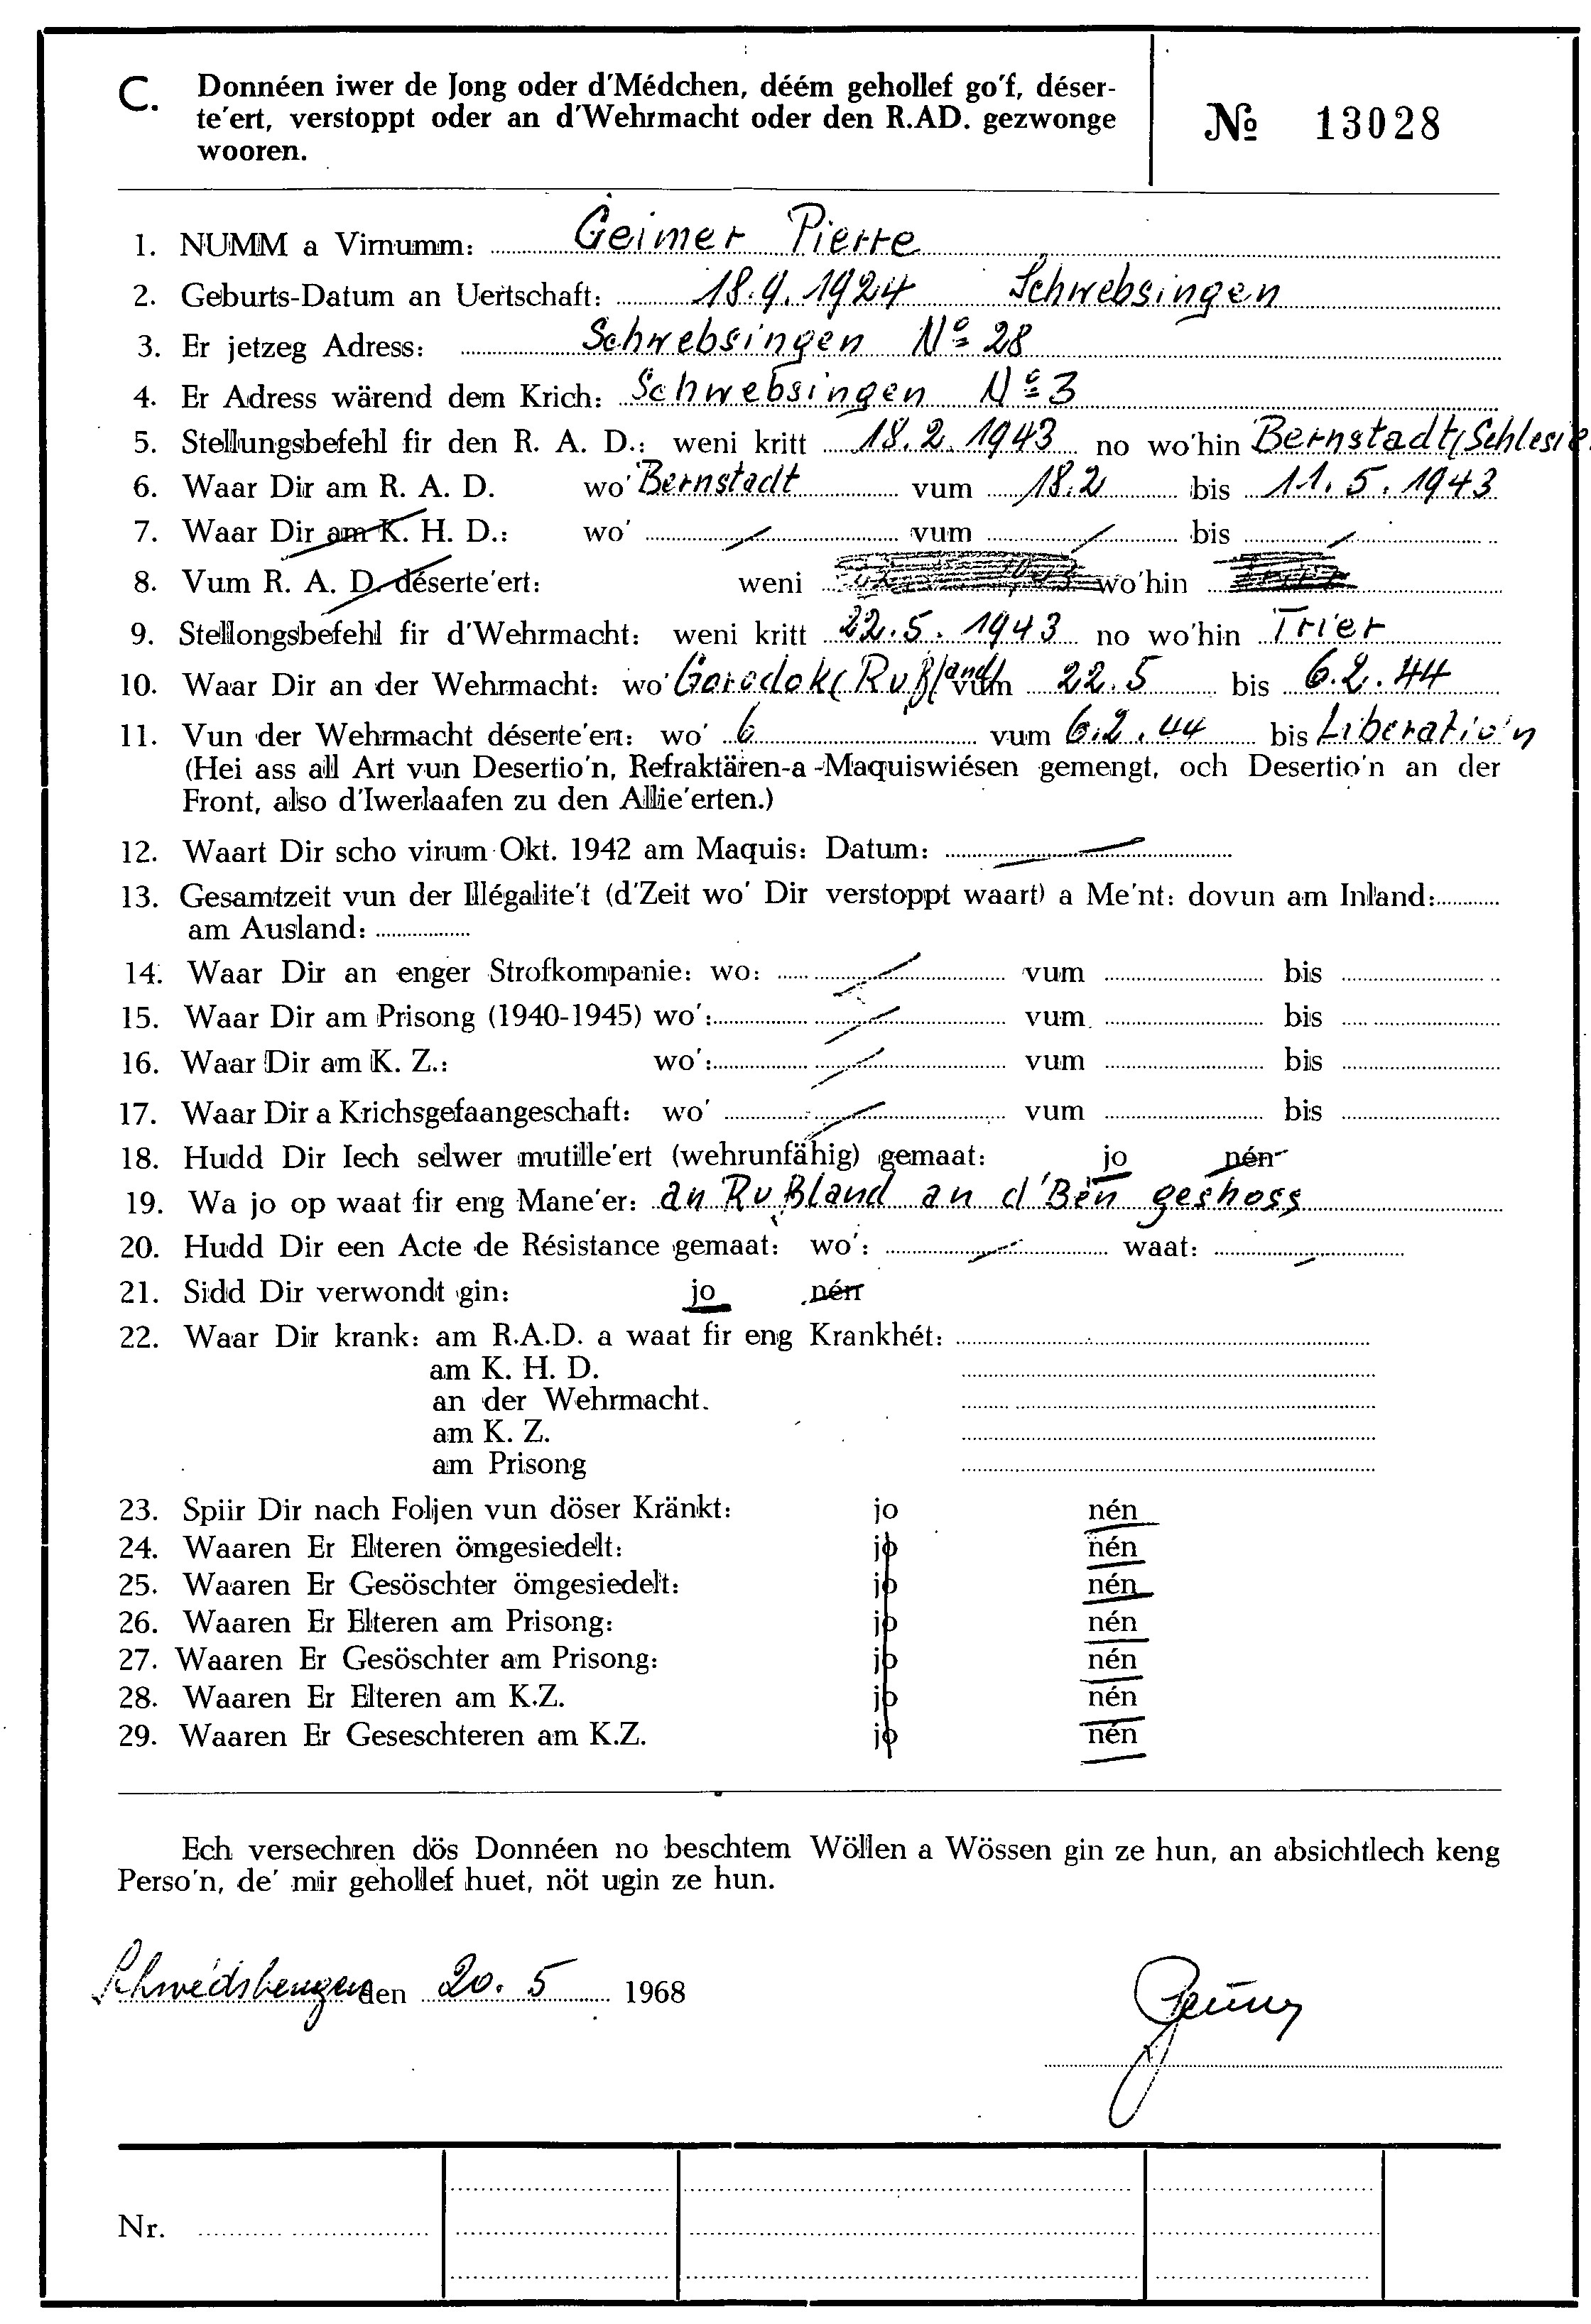 C. Donnéen iwer de Jong oder d'Médchen, déém gehollef go'f, déser-
te'ert, verstoppt oder an d'Wehrmacht oder den R.AD. gezwonge
wooren.
№ 13028
1. NUMM a Virnumm: Geimer Pierre
2. Geburts-Datum an Uertschaft: 18.9.1924 Schwebsingen
3. Er jetzeg Adress: Schwebsingen No 28
4. Er Adress wärend dem Krich: Schwebsingen No 3
5. Stellungsbefehl fir den R. A. D.: weni kritt 18.2.1943 no wo'hin Bernstadt (Schlesie
6. Waar Dir am R. A. D. wo' Bernstadt vum 18.2 bis 11.5.1943
7. Waar Dir am K. H. D.: wo' vum bis
8. Vum R. A. D. déserte'ert: weni wo'hin
9. Stellongsbefehl fir d'Wehrmacht: weni kritt 22.5.1943 no wo'hin Trier
10. Waar Dir an der Wehrmacht: wo' Gorodok (Rußland) vum 22.5 bis 6.2.44
11. Vun der Wehrmacht déserte'ert: wo' vum 6.2.44 bis Liberatio'n
(Hei ass all Art vun Desertio'n, Refraktären-a-Maquiswiésen gemengt, och Desertio'n an der
Front, also d'Iwerlaafen zu den Allie'erten.)
12. Waart Dir scho virum Okt. 1942 am Maquis: Datum:
13. Gesamtzeit vun der Illégalite't (d'Zeit wo' Dir verstoppt waart) a Me'nt: dovun am Inland:
am Ausland:
14. Waar Dir an enger Strofkompanie: wo: vum bis
15. Waar Dir am Prisong (1940-1945) wo': vum bis
16. Waar Dir am K. Z.: wo': vum bis
17. Waar Dir a Krichsgefaangeschaft: wo' vum bis
18. Hudd Dir Iech selwer mutille'ert (wehrunfähig) gemaat: jo nén
19. Wa jo op waat fir eng Mane'er: an Rußland an d'Bën geshoss
20. Hudd Dir een Acte de Résistance gemaat: wo': waat:
21. Sidd Dir verwondt gin: jo nén
22. Waar Dir krank: am R.A.D. a waat fir eng Krankhét:
am K. H. D.
an der Wehrmacht.
am K. Z.
am Prisong
23. Spiir Dir nach Foljen vun döser Kränkt: jo nén
24. Waaren Er Elteren ömgesiedelt: jo nén
25. Waaren Er Gesöschter ömgesiedelt: jo nén
26. Waaren Er Elteren am Prisong: jo nén
27. Waaren Er Gesöschter am Prisong: jo nén
28. Waaren Er Elteren am K.Z. jo nén
29. Waaren Er Geseschteren am K.Z. jo nén
Ech versechren dös Donnéen no beschtem Wöllen a Wössen gin ze hun, an absichtlech keng
Perso'n, de' mir gehollef huet, nöt ugin ze hun.
den 20.5 1968
Nr.